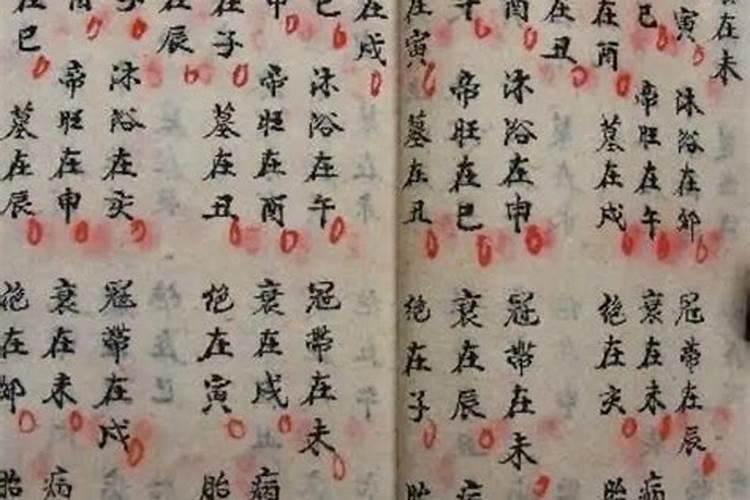 在未
寅
巳
在酉
在丑
酉
午
在寅
在戌
巳
申
在子
在辰
子
在巳
沐浴在卯
帝旺在午
墓在戌
沐浴在申
帝旺在巳
墓在丑
沐浴在午
帝旺在酉
墓在丑
沐浴在亥
帝旺在申
墓在辰
冠帶在辰
衰在未
绝在亥
冠帶在未
衰在辰
绝在子
冠帶在未
衰在戌
绝在寅
冠帶在戌
衰在未
绝在卯
病
胎
病
胎
病
胎
病
胎